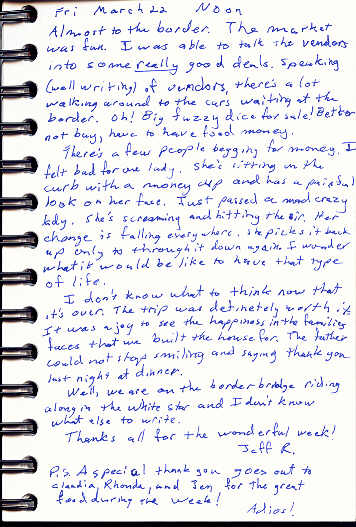 Fri March 22 Noon
Almost to the border. The market
was fun. I was able to talk the vendors
into some really good deals. Speaking
(well writing) of vendors, there's a lot
walking around to the cars waiting at the
border. Oh! Big fuzzy dice for sale! Better
not buy, have to have food money.
There's a few people begging for money. I
felt bad for one lady. She's sitting on the
curb with a money cup and has a painful
look on her face. Just passed a mad crazy
lady. She's screaming and hitting the air. Her
change is falling everywhere. She picks it back
up only to through it down again. I wonder
what it would be like to have that type
of life.
I don't know what to think now that
it's over. The trip was definetely worth it.
It was a joy to see the happiness in the families
faces that we built the house for. The father
could not stop smiling and saying thank you
last night at dinner.
Well, we are on the border bridge riding
along in the White star and I don't know
what else to write.
Thanks all for the wonderful week!
Jeff R.
P.S. A special thank you goes out to
Claudia, Rhonda, and Jen for the great
food during the week!
Adios!